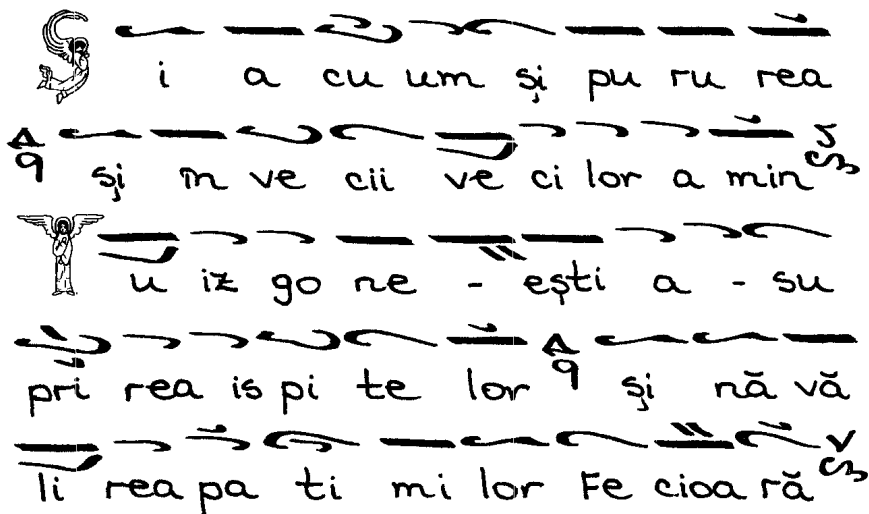 Și a cu um și pu ru rea
și în ve cii ve ci lor a min
Tu iz go ne - ești a - su
pri rea is pi te lor și nă vă
li rea pa ti mi lor Fe cioa ră